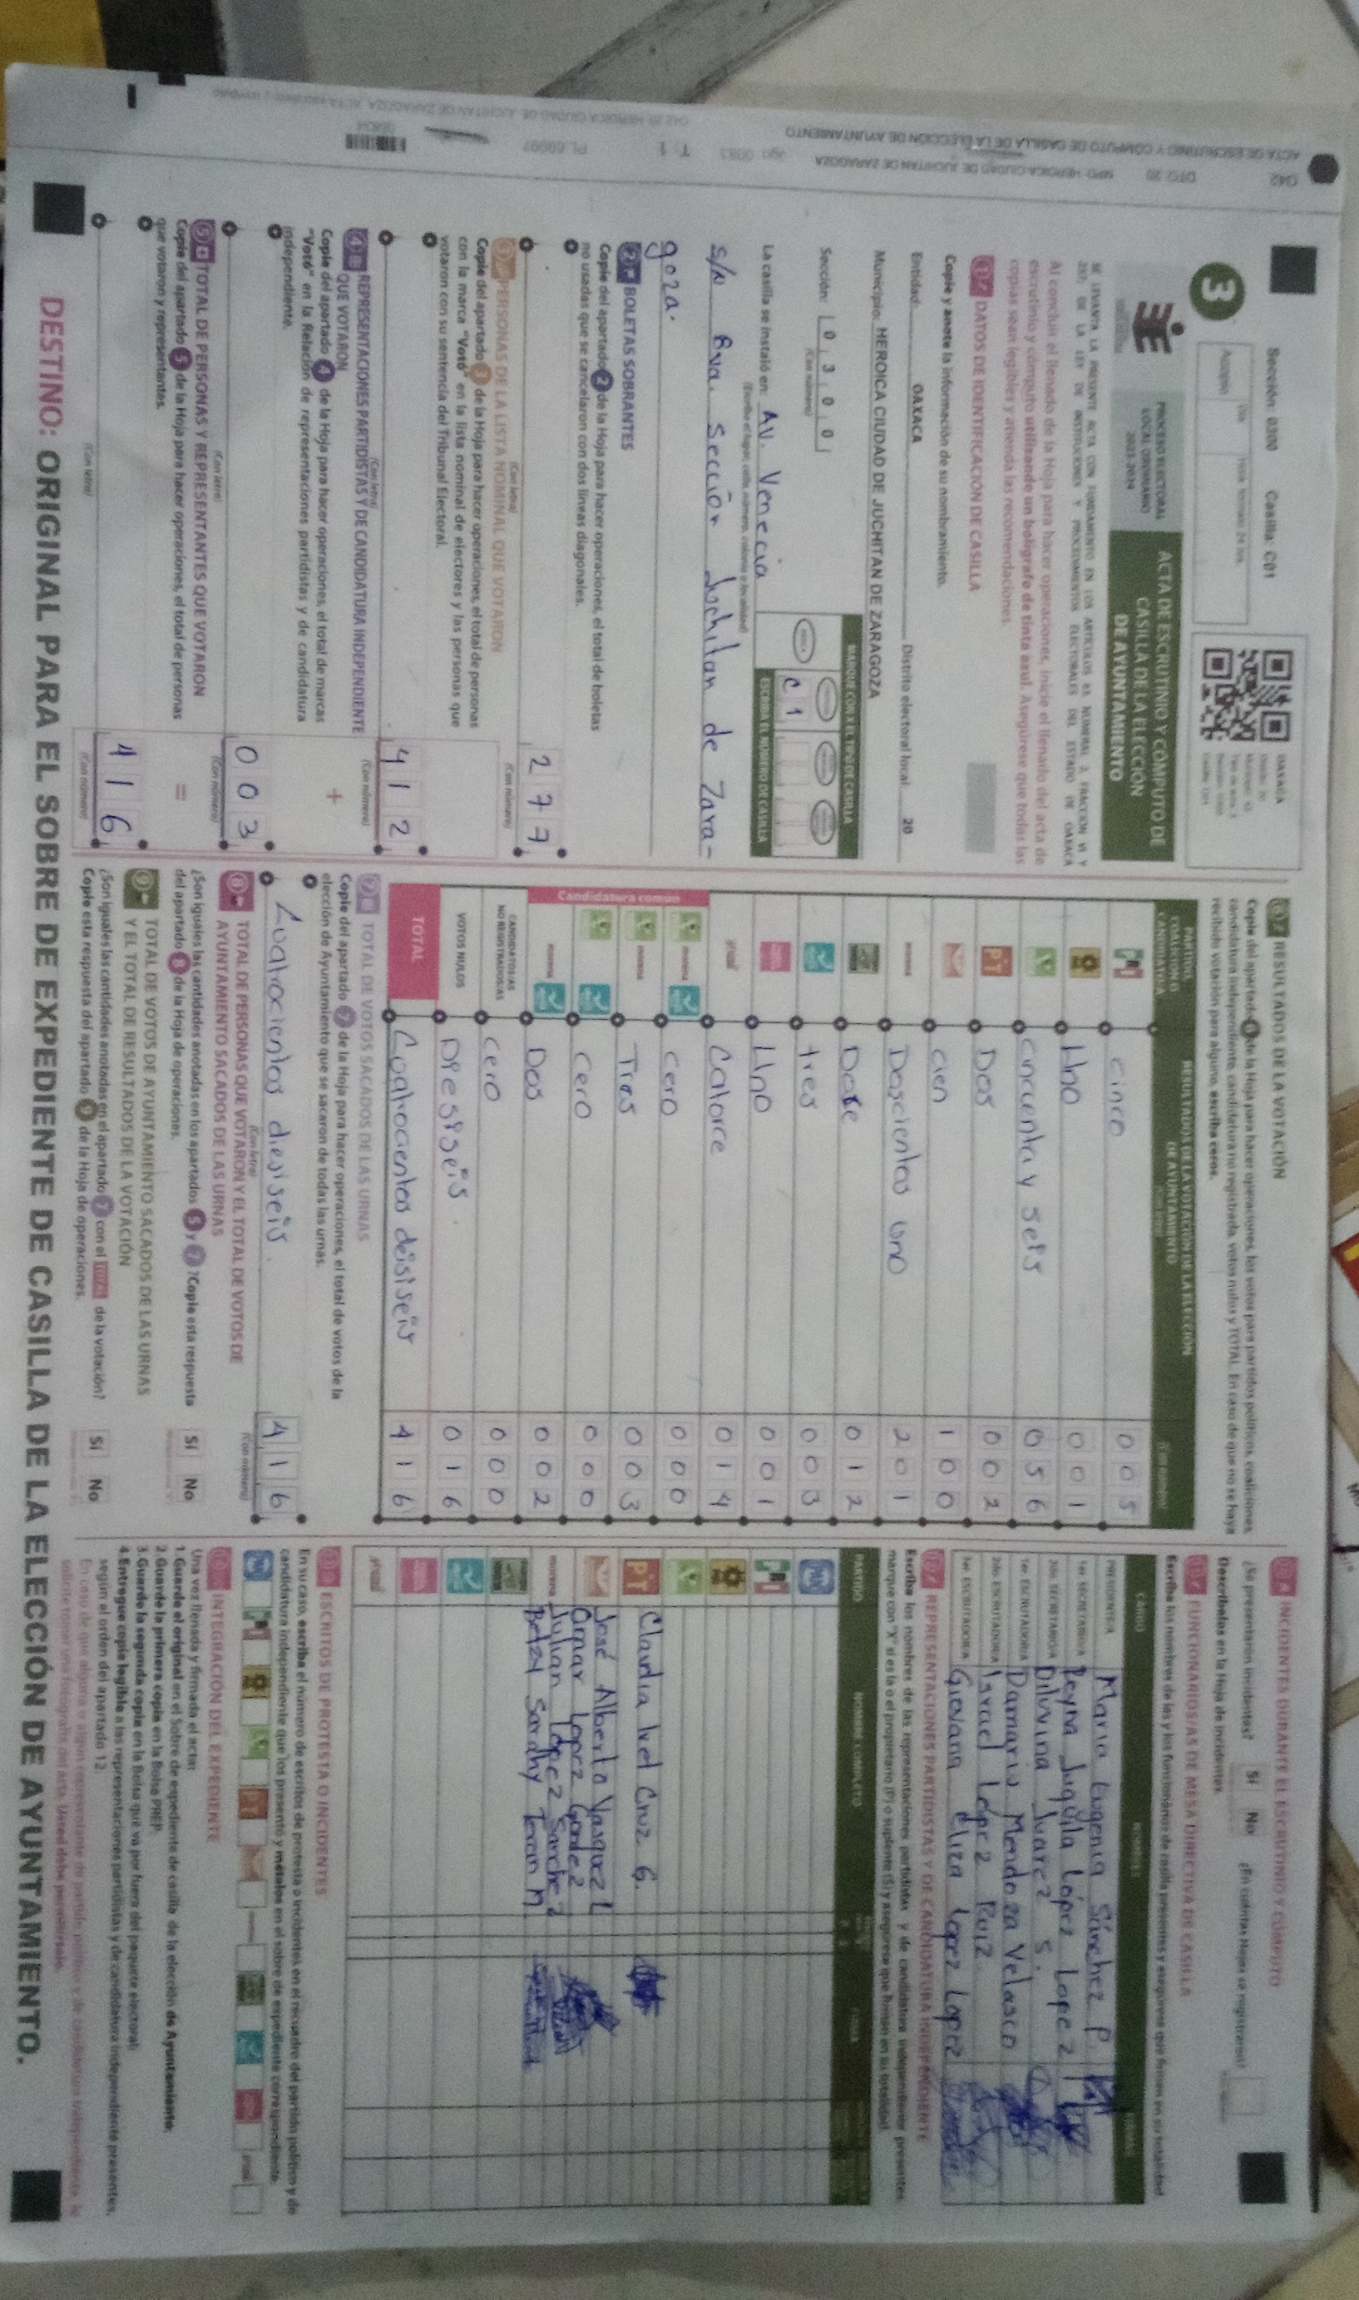 ACTA DE ESCRUTINIO Y CÓMPUTO DE CASILLA DE LA ELECCIÓN DE AYUNTAMIENTO
Sección: 0300 Casilla: C01
3
OAXACA
PROCESO ELECTORAL
LOCAL ORDINARIO
2023-2024
ACTA DE ESCRUTINIO Y CÓMPUTO DE
CASILLA DE LA ELECCIÓN
DE AYUNTAMIENTO
Al concluir el llenado de la Hoja para hacer operaciones, inicie el llenado del acta de
escrutinio y cómputo utilizando un bolígrafo de tinta azul. Asegúrese que todas las
copias sean legibles y atienda las recomendaciones.
1 DATOS DE IDENTIFICACIÓN DE CASILLA
Copie y anote la información de su nombramiento.
Entidad: OAXACA Distrito electoral local: 20
Municipio: HEROICA CIUDAD DE JUCHITAN DE ZARAGOZA
Sección: 0 3 0 0
(Con número)
MARQUE CON X EL TIPO DE CASILLA
C 1
ESCRIBA EL NÚMERO DE CASILLA
La casilla se instaló en: AV. Venecia
s/n 8va. Sección Juchitan de Zara-
goza.
2 BOLETAS SOBRANTES
Copie del apartado 2 de la Hoja para hacer operaciones, el total de boletas
no usadas que se cancelaron con dos líneas diagonales.
2 7 7
(Con letra) (Con número)
3 PERSONAS DE LA LISTA NOMINAL QUE VOTARON
Copie del apartado 3 de la Hoja para hacer operaciones, el total de personas
con la marca "Votó" en la lista nominal de electores y las personas que
votaron con su sentencia del Tribunal Electoral.
4 1 2
(Con letra) (Con número)
4 REPRESENTACIONES PARTIDISTAS Y DE CANDIDATURA INDEPENDIENTE
QUE VOTARON +
Copie del apartado 4 de la Hoja para hacer operaciones, el total de marcas
"Votó" en la Relación de representaciones partidistas y de candidatura
independiente.
0 0 3
(Con letra) (Con número)
5 TOTAL DE PERSONAS Y REPRESENTANTES QUE VOTARON
Copie del apartado 5 de la Hoja para hacer operaciones, el total de personas =
que votaron y representantes.
4 1 6
(Con letra) (Con número)
6 RESULTADOS DE LA VOTACIÓN
Copie del apartado 6 de la Hoja para hacer operaciones, los votos para partidos políticos, coaliciones,
candidatura independiente, candidatura no registrada, votos nulos y TOTAL. En caso de que no se haya
recibido votación para alguno, escriba ceros.
RESULTADOS DE LA VOTACIÓN DE LA ELECCIÓN
DE AYUNTAMIENTO
cinco 0 0 5
Uno 0 0 1
cincuenta y seis 0 5 6
PT Dos 0 0 2
cien 1 0 0
morena Doscientos uno 2 0 1
Doce 0 1 2
tres 0 0 3
Uno 0 0 1
Catorce 0 1 4
Candidatura común
cero 0 0 0
Tres 0 0 3
cero 0 0 0
Dos 0 0 2
CANDIDATOS/AS
NO REGISTRADOS/AS cero 0 0 0
VOTOS NULOS Diesiseis. 0 1 6
TOTAL Cuatrocientos deisiseis 4 1 6
7 TOTAL DE VOTOS SACADOS DE LAS URNAS
Copie del apartado 7 de la Hoja para hacer operaciones, el total de votos de la
elección de Ayuntamiento que se sacaron de todas las urnas.
Cuatrocientos diesiseis. 4 1 6
(Con letra) (Con número)
8 TOTAL DE PERSONAS QUE VOTARON Y EL TOTAL DE VOTOS DE
AYUNTAMIENTO SACADOS DE LAS URNAS
¿Son iguales las cantidades anotadas en los apartados 5 y 7? Copie esta respuesta
del apartado 8 de la Hoja de operaciones. Sí No
9 TOTAL DE VOTOS DE AYUNTAMIENTO SACADOS DE LAS URNAS
Y EL TOTAL DE RESULTADOS DE LA VOTACIÓN
¿Son iguales las cantidades anotadas en el apartado 7 con el TOTAL de la votación?
Copie esta respuesta del apartado 9 de la Hoja de operaciones. Sí No
10 INCIDENTES DURANTE EL ESCRUTINIO Y CÓMPUTO
¿Se presentaron incidentes? Sí No
Descríbalos en la Hoja de incidentes.
11 FUNCIONARIOS/AS DE MESA DIRECTIVA DE CASILLA
Escriba los nombres de las y los funcionarios de casilla presentes y asegúrese que firmen en su totalidad.
CARGO NOMBRES
Maria Eugenia Sánchez P.
Reyna Juquila López Lopez
Diluvina Juarez S.
Damaris Mendoza Velasco
Israel López Ruiz
Giovana Eliza Lopez Lopez
12 REPRESENTACIONES PARTIDISTAS Y DE CANDIDATURA INDEPENDIENTE
Escriba los nombres de las representaciones partidistas y de candidatura independiente presentes,
marque con "X" si es la o el propietario (P) o suplente (S) y asegúrese que firmen en su totalidad.
PARTIDO NOMBRE COMPLETO
PT Claudia Ivet Cruz G.
José Alberto Vasquez L
Omar López
morena Julian López Sanchez
Betzy Sarahy Teran M
13 ESCRITOS DE PROTESTA O INCIDENTES
En su caso, escriba el número de escritos de protesta o incidentes en el recuadro del partido político y de
candidatura independiente que los presentó y métalos en el sobre de expediente correspondiente.
14 INTEGRACIÓN DEL EXPEDIENTE
Una vez llenada y firmada el acta:
1. Guarde el original en el Sobre de expediente de casilla de la elección de Ayuntamiento;
2. Guarde la primera copia en la Bolsa PREP;
3. Guarde la segunda copia en la Bolsa que va por fuera del paquete electoral;
4. Entregue copia legible a las representaciones partidistas y de candidatura independiente presentes,
según el orden del apartado 12.
DESTINO: ORIGINAL PARA EL SOBRE DE EXPEDIENTE DE CASILLA DE LA ELECCIÓN DE AYUNTAMIENTO.